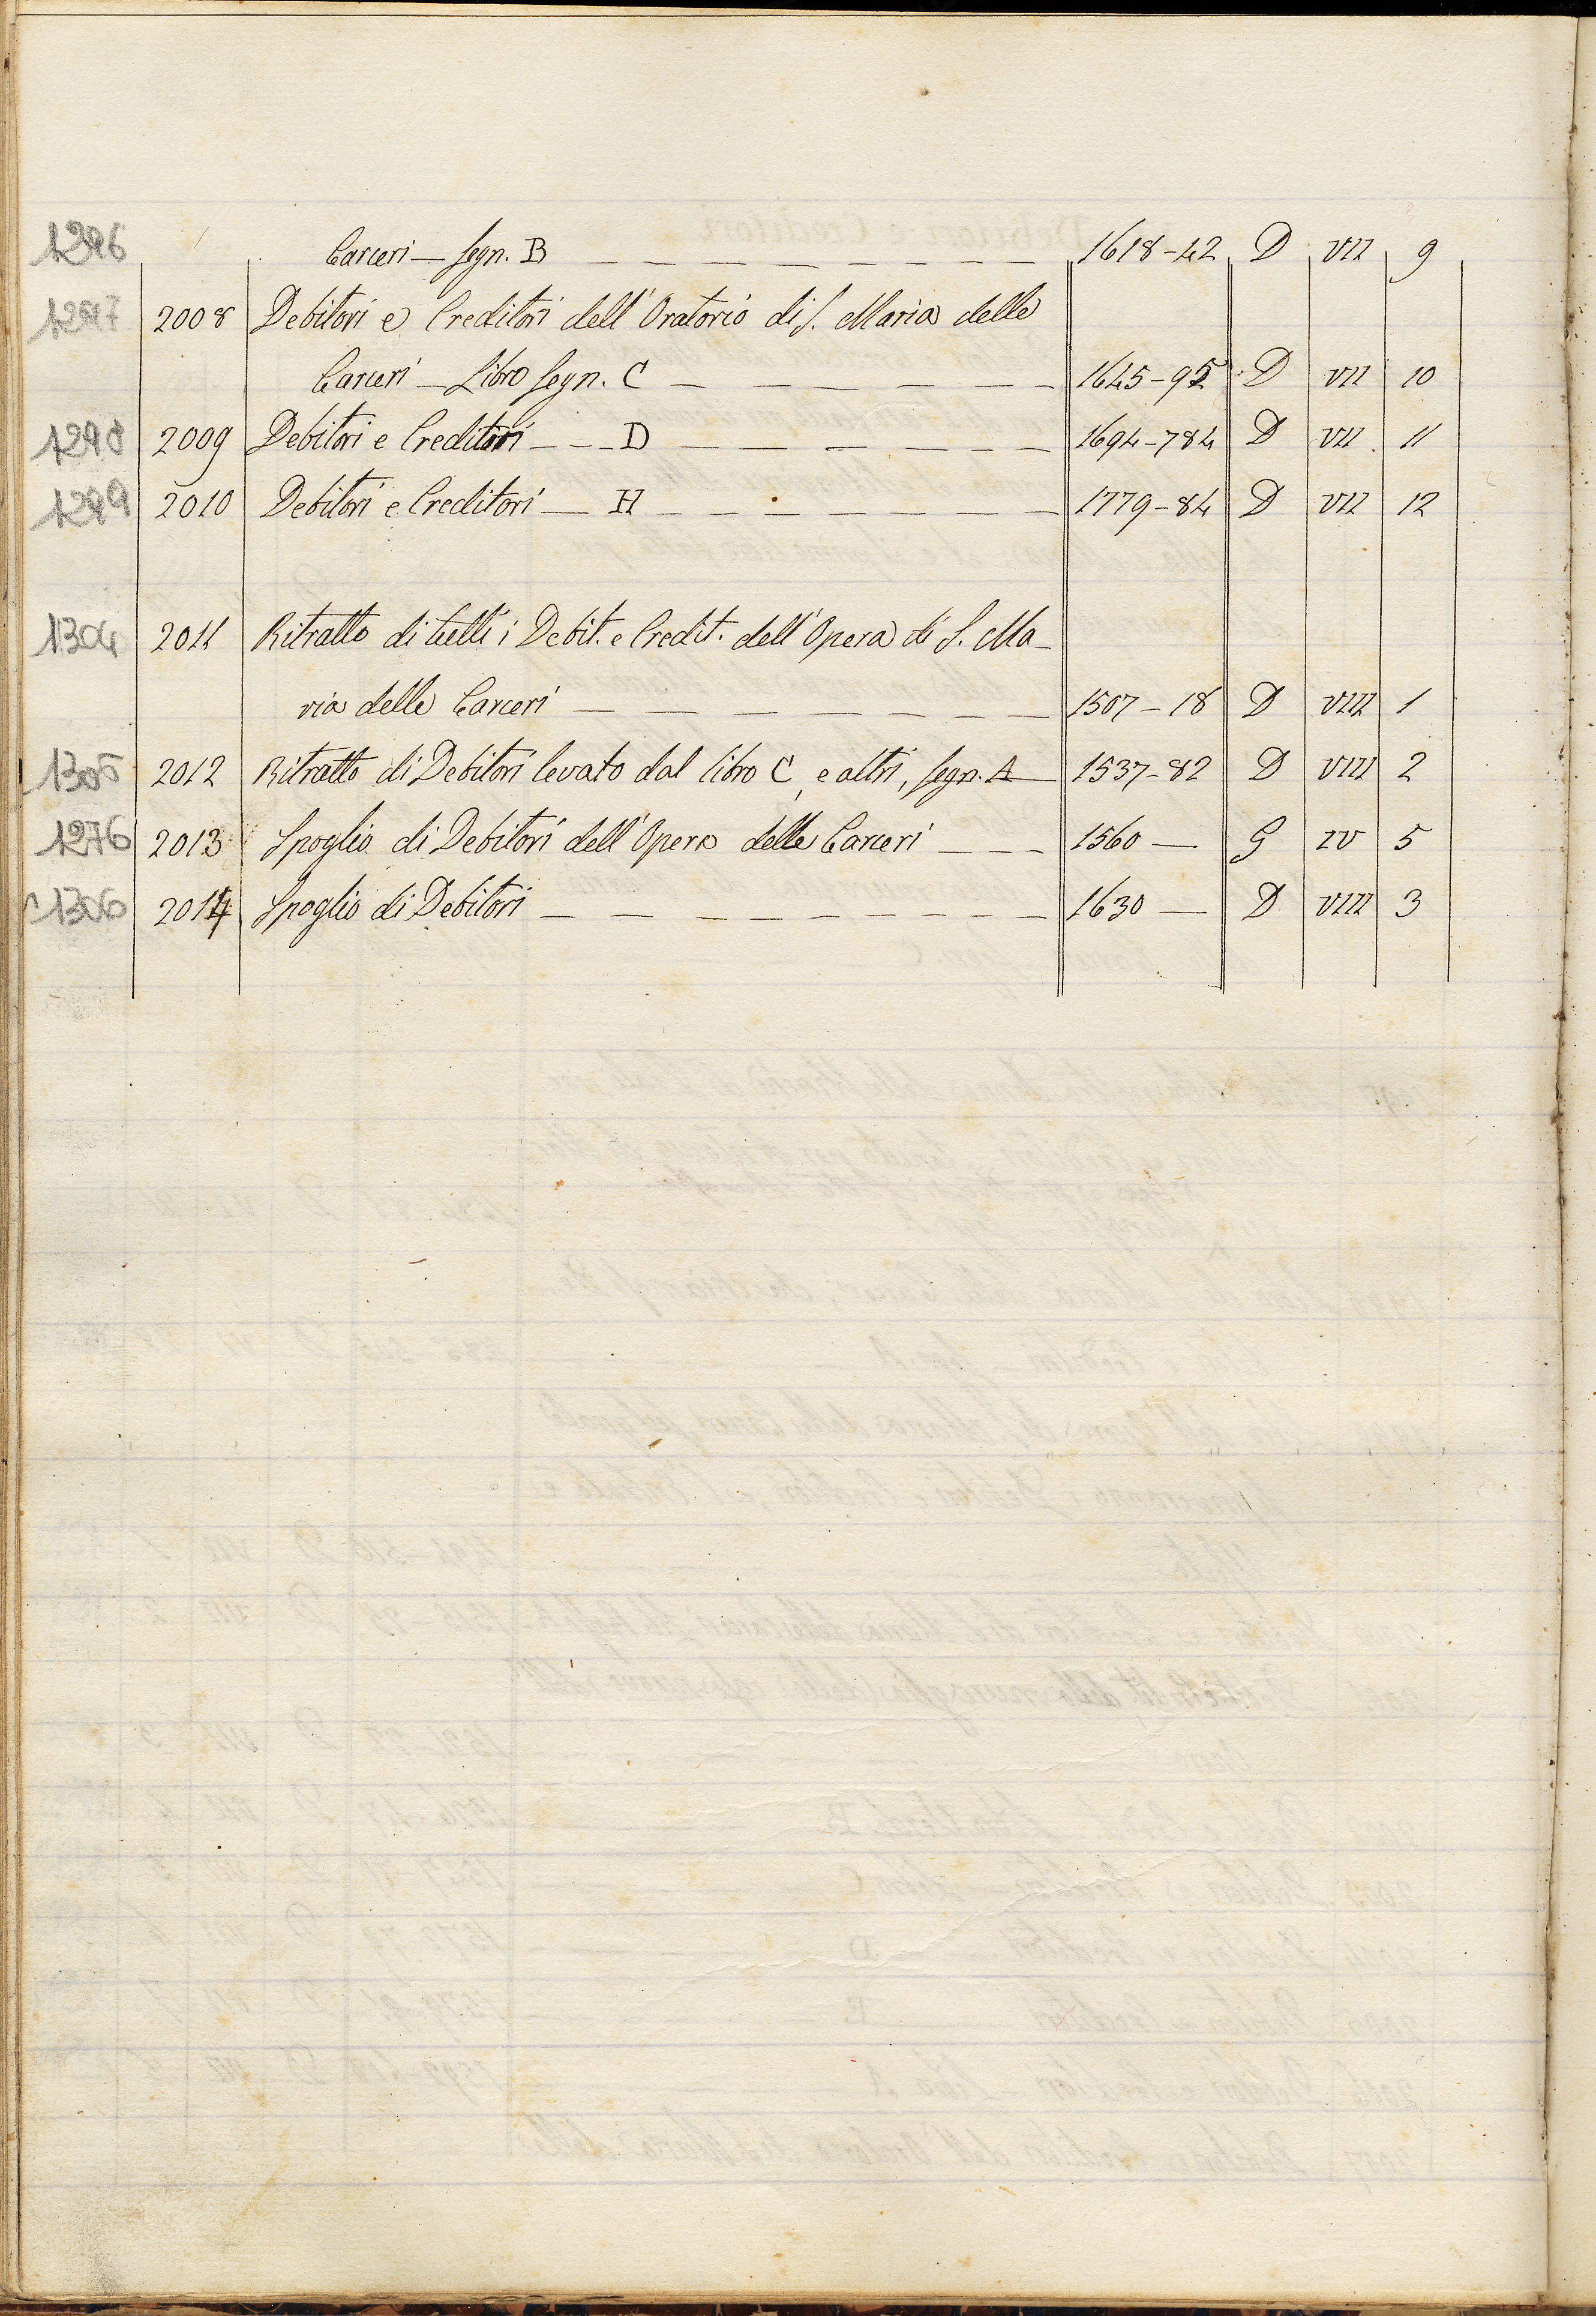 1296 Carceri — Segn. B — — — — — — — — 1618-42 D VII 9
1297 2008 Debitori e Creditori dell'Oratorio di S. Maria delle
Carceri — Libro Segn. C — — — — — — 1645-95 D VII 10
1298 2009 Debitori e Creditori — — D — — — — — — 1694-784 D VII 11
1299 2010 Debitori e Creditori — H — — — — — — — 1779-84 D VII 12
1304 2011 Ritratto di tutti i Debit. e Credit. dell'Opera di S. Ma-
ria delle Carceri — — — — — — — 1507-18 D VIII 1
1305 2012 Ritratto di Debitori levato dal libro C, e altri, Segn. A — 1537-82 D VIII 2
1276 2013 Spoglio di Debitori dell'Opera delle Carceri — — — 1560 — G IV 5
1306 2014 Spoglio di Debitori — — — — — — — — — 1630 — D VIII 3